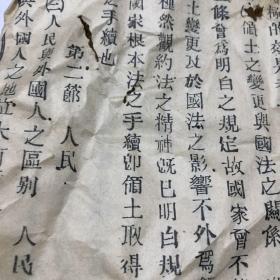 領土之變更與國法之關係
條會爲明白之規定故國家會不
土變更及於國法之影響不外爲
種然觀約法之精神旣已明白規
國家根本法之手續卽領土取得
之手續也
第二節 人民
人民與外國人之區別 人民
與外國人之地位大